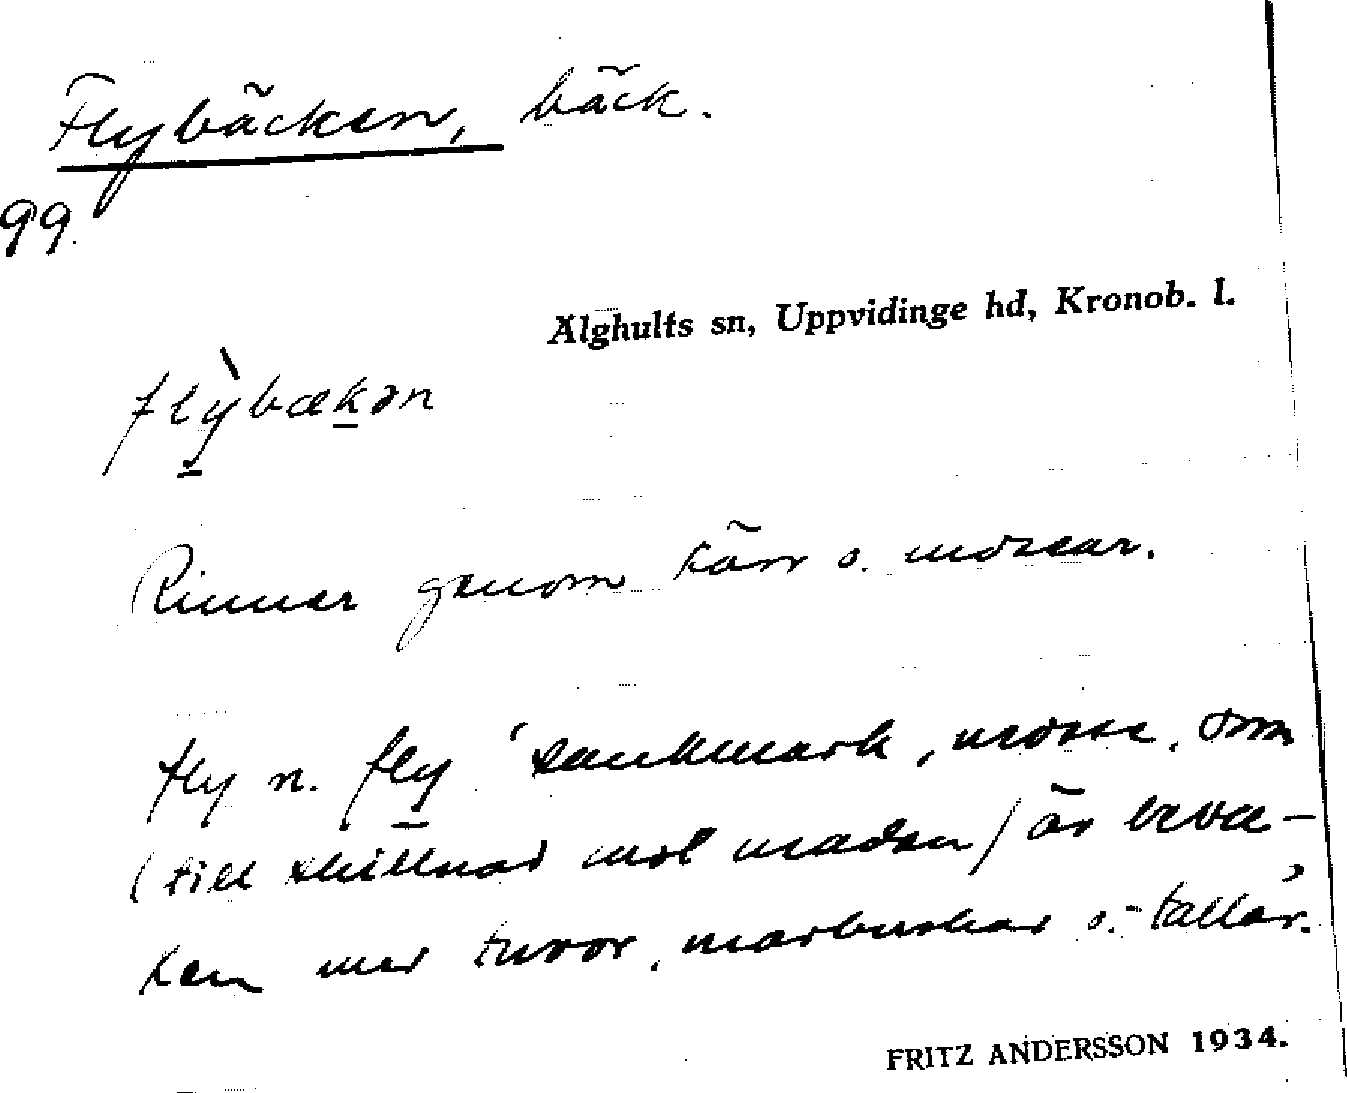 Flybäcken, bäck.
99.
Älghults sn, Uppvidinge hd, Kronob. l.
flỳbækən
Rinner genom kärr o. mossar.
fly n. fly 'sankmark, mosse, som
(till skillnad mot maden) är bevu-
xen med tuvor, marbuskar o. tallar.
FRITZ ANDERSSON 1934.